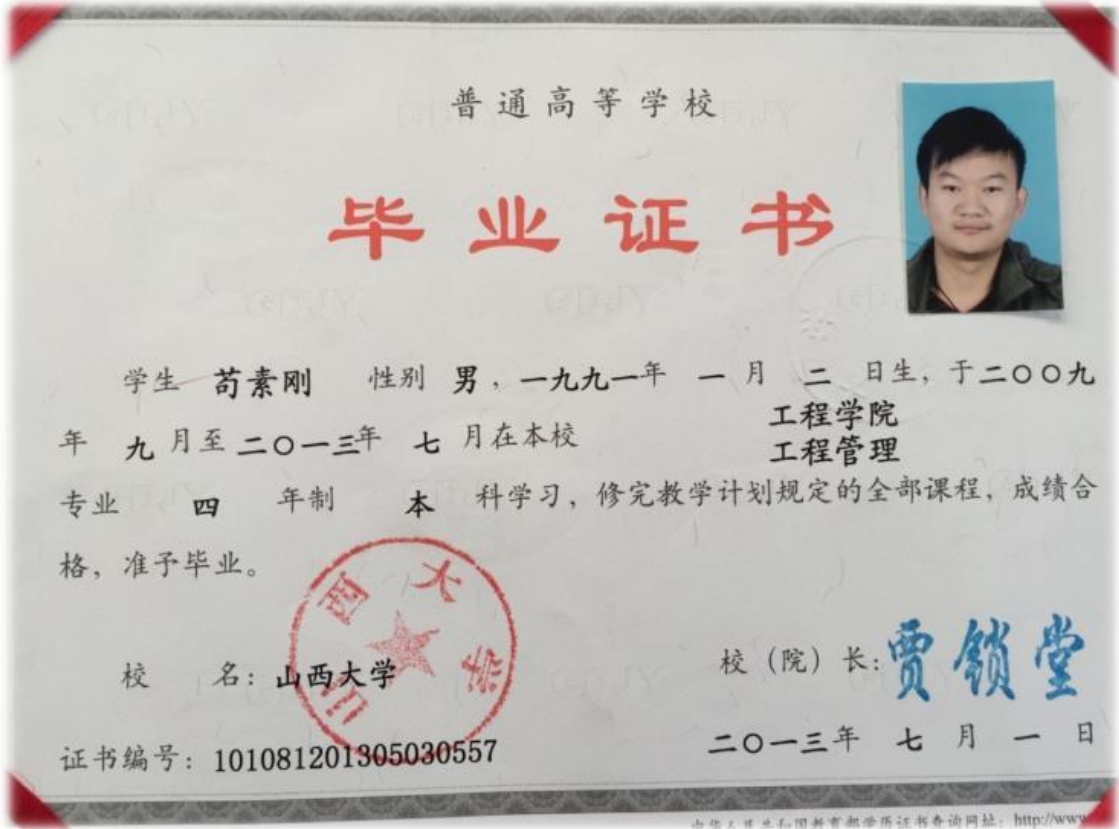 普通高等学校
毕业证书
学生 苟素刚 性别 男，一九九一年 一 月 二 日生，于二〇〇九
年 九 月至 二〇一三年 七 月在本校 工程学院
工程管理
专业 四 年制 本 科学习，修完教学计划规定的全部课程，成绩合
格，准予毕业。
山西大学
校 名：山西大学
校（院）长：贾锁堂
证书编号：101081201305030557
二〇一三年 七 月 一 日
中华人民共和国教育部学历证书查询网址：http://www